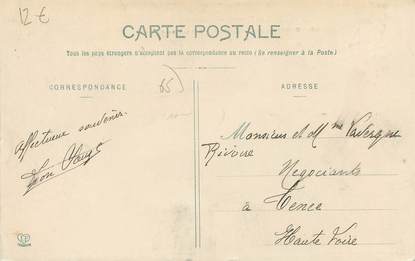 12 €
CARTE POSTALE
Tous les pays étrangers n'acceptent pas la correspondance au recto (Se renseigner à la Poste)
65)
CORRESPONDANCE
ADRESSE
Affectueux souvenir
Monsieur et Mme
Rivoire
Negociants
à Tence
Haute Loire